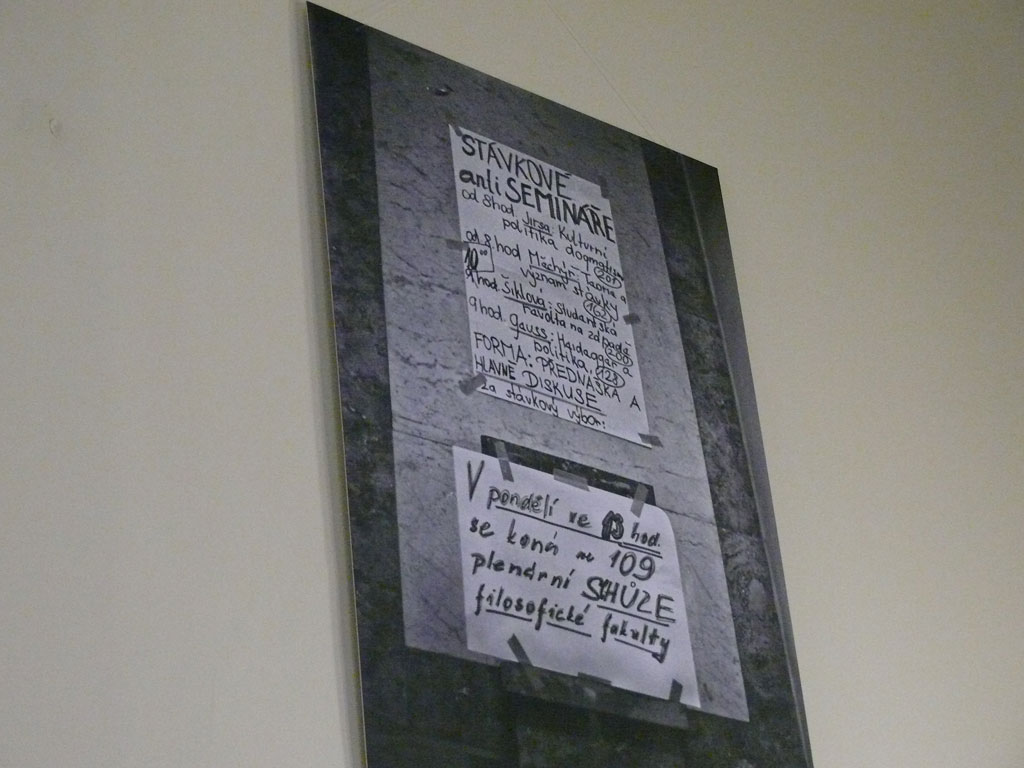 STÁVKOVÉ
anti SEMINÁŘE
od 8 hod. Jirsa: Kulturní
politika dogmatizmu
od 8 hod Měchýř: Teorie a
10⁰⁰ význam stávky
9 hod. Šiklová: Studentská
revolta na západě
9 hod. Gauss: Heidegger a
politika. 128
FORMA: PŘEDNÁŠKA A
HLAVNĚ DISKUSE
za stávkový výbor:
V pondělí ve 13 hod.
se koná v 109
plenární SCHŮZE
filosofické fakulty